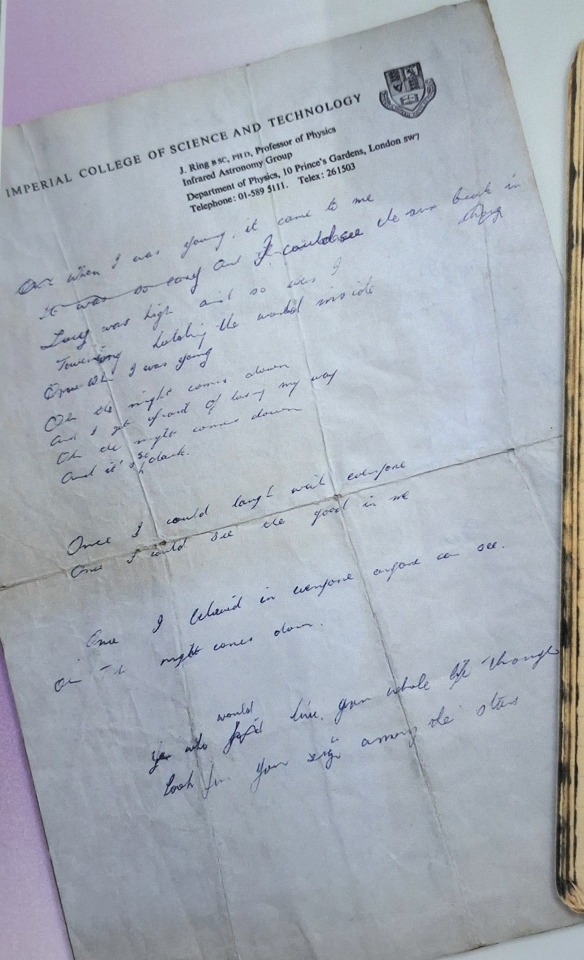 IMPERIAL COLLEGE OF SCIENCE AND TECHNOLOGY
J. Ring BSC, PH D, Professor of Physics
Infrared Astronomy Group
Department of Physics, 10 Prince's Gardens, London SW7
Telephone: 01-589 5111. Telex: 261503
when I was young, it came to me
It was so easy And I could see the sun
Lucy was high and so was I
holding the world inside
Once when I was young
Oh the night comes down
And I get afraid of losing my way
Oh the night comes down
And it's so dark.
Once I could laugh with everyone
Once I could see the good in me
Once I believed in everyone anyone can see.
Oh night comes down.
would
who live your whole life through
look for your sign among the stars